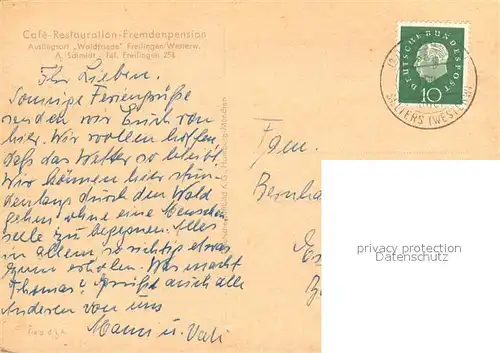 Café-Restauration-Fremdenpension
Ausflugsort „Waldfriede" Freilingen/Westerw.
A. Schmitt - Tel. Freilingen 254
Ihr Lieben.
Sonnige Feriengrüße
senden wir Euch von
hier. Wir wollen hoffen,
daß das Wetter so bleibt.
Wir können hier stun-
denlang durch den Wald
gehen ohne eine Menschen
seele zu begegnen. Alles
in allem, so richtig etwas
zum erholen. Was macht
Thomas? Grüßt auch alle
Anderen von uns
Manni u. Vati
DEUTSCHE BUNDESPOST
10
SELTERS (WESTERW)
Fam.
Bernha
privacy protection
Datenschutz